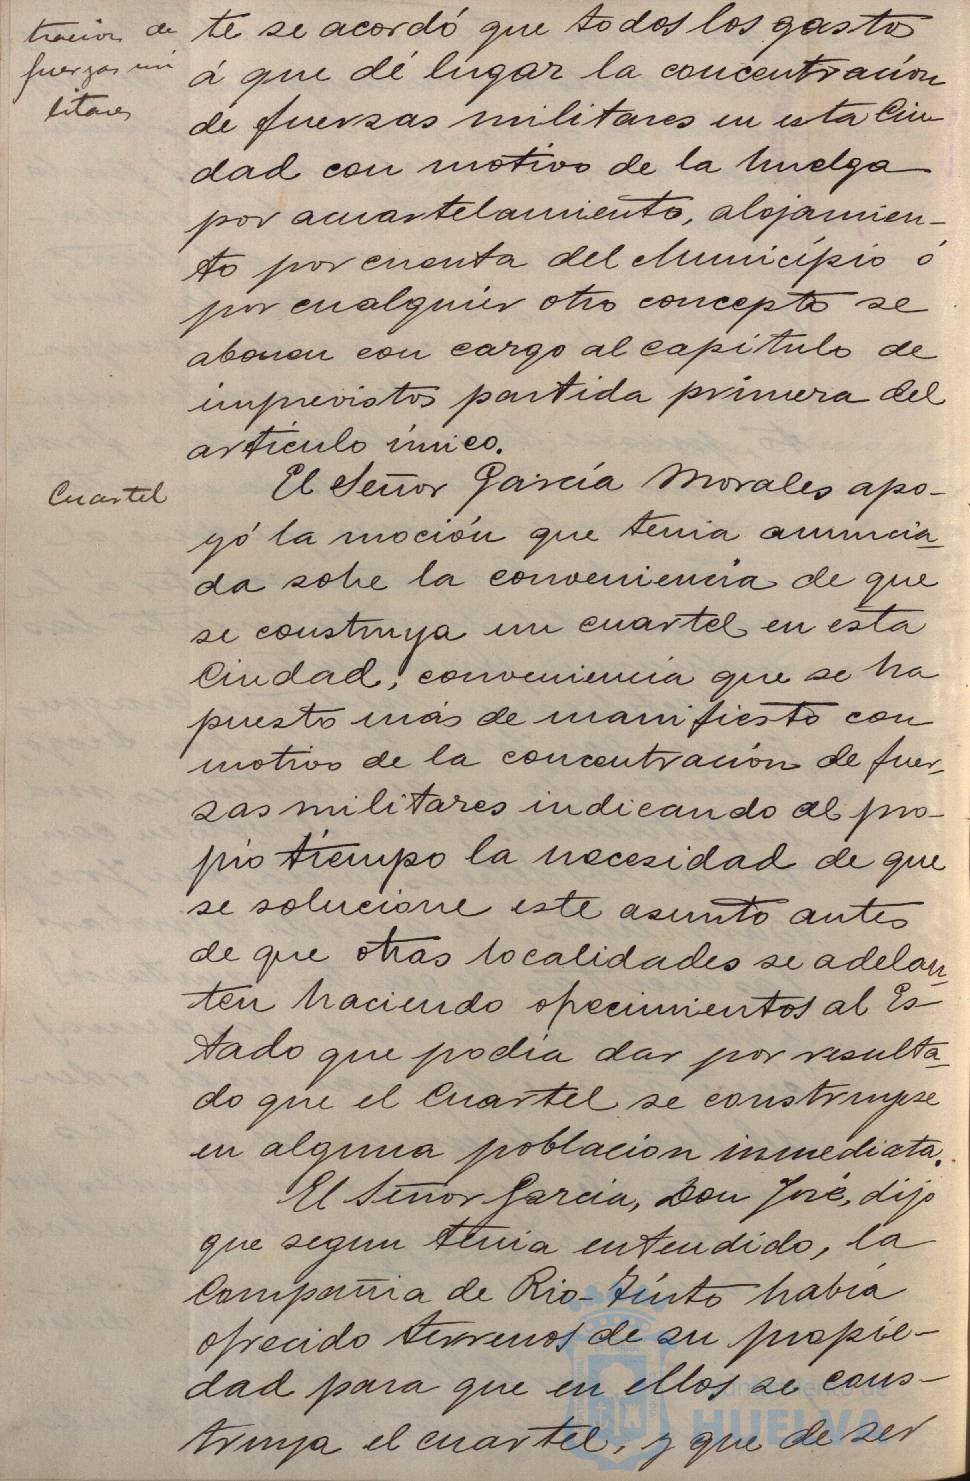 tracion de
fuerzas mi
litares
te se acordó que todos los gastos
á que dé lugar la concentración
de fuerzas militares en esta Ciu
dad con motivo de la huelga
por acuartelamiento, alojamien-
to por cuenta del Municipio ó
por cualquier otro concepto se
abonen con cargo al capitulo de
imprevistos partida primera del
artículo único.
Cuartel
El Señor García Morales apo-
yó la moción que tenia anuncia-
da sobre la conveniencia de que
se construya un cuartel en esta
Ciudad, conveniencia que se ha
puesto más de manifiesto con
motivo de la concentración de fuer-
zas militares indicando al pro-
pio tiempo la necesidad de que
se solucione este asunto antes
de que otras localidades se adelan-
ten haciendo ofrecimientos al Es-
tado que podia dar por resulta-
do que el Cuartel se construyse
en alguna poblacion inmediata.
El Señor Garcia, Don José, dijo
que segun tenia entendido, la
Compañia de Rio-Tinto había
ofrecido terrenos de su propie-
dad para que en ellos se cons-
truya el cuartel, y que de ser
Ayuntamiento de
HUELVA